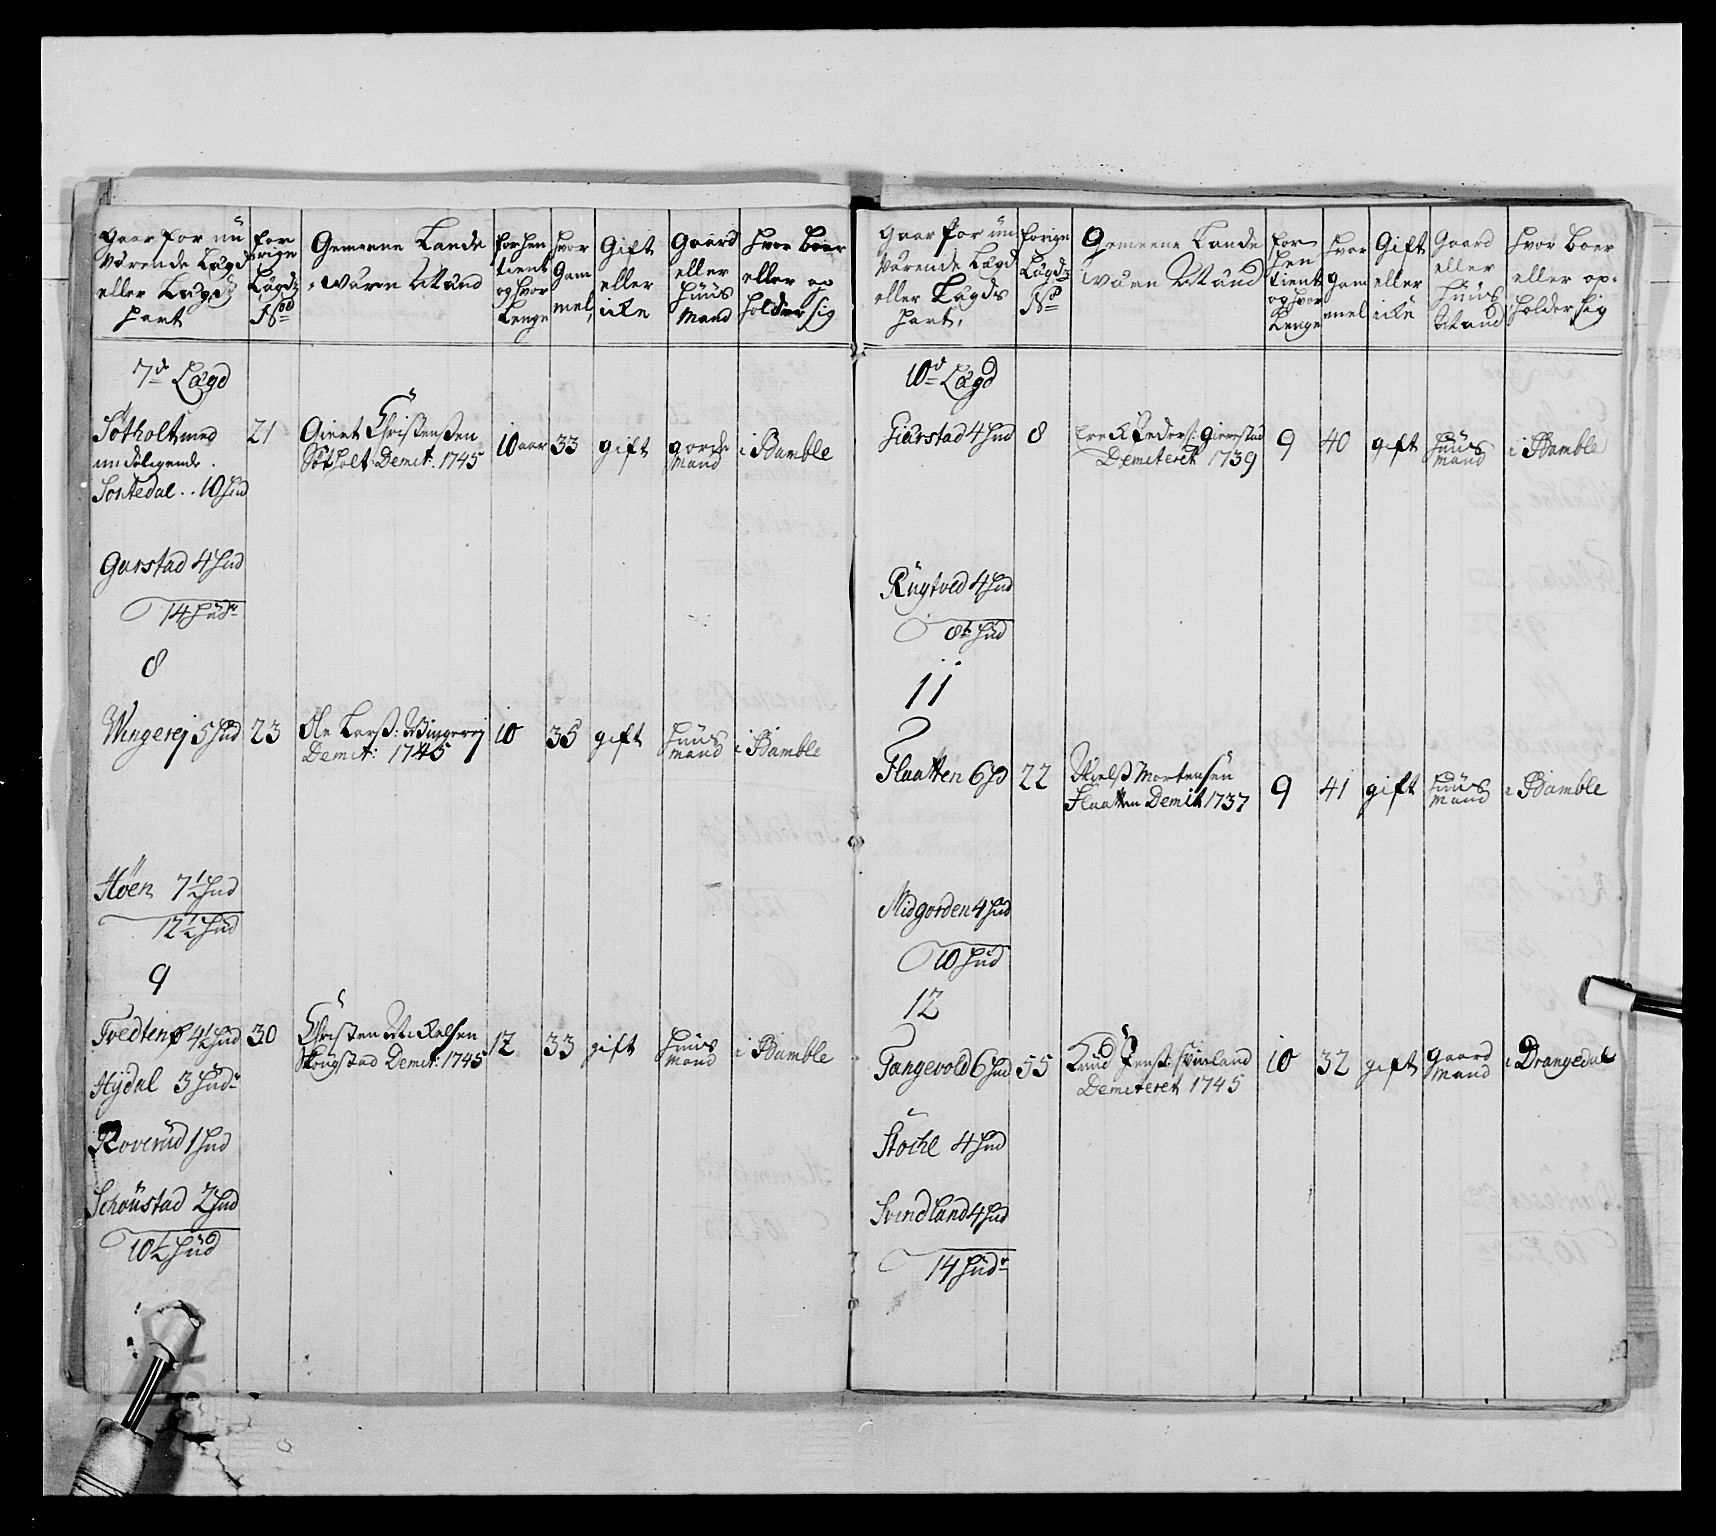 Gaar for nu
værende Lægd
eller Lægds
part
for
rige
Lægds
No
Gemeene Lande
wærn Mand
forhen
tient
og hvor
Lenge
hvor
gam
mel,
Gift
eller
icke
Gaard
eller
Huus
Mand
hvor boer
eller op
holder sig
7d Lægd
Sotholt med
underligende
Sortedal .. 10 Hud
21
Giert Christensen
Sotholt Demit: 1745
10 aar
33
gift
gorde
Mand
i Bamble
Garstad 4 Hud
14 Hudr
8
Wingerej 5 Hud
23
Ole Larss: Wingerej
Demit: 1745
10
35
gift
Huus
mand
i Bamble
Høen 7½ Hud
12½ Hud
9
Tvedten 4½ Hud
30
Christen Mickelsen
Skougstad Demit: 1745
12
33
gift
Huus
Mand
i Bamble
Hÿdal 3 Hudr
Roverud 1 Hud
Schoustad 2 Hud
10½ Hud
Gaar for nu
værende Lægd
eller Lægds
part,
forige
Lægds
No
Gemeene Lande
wæren Mand
for
hen
tient
og hvor
Lenge
hvor
gam
mel
Gift
eller
icke
Gaard
eller
Huus
Mand
hvor boer
eller op-
holder sig
10d Lægd
Giarstad 4 Hud
8
Peders: Gierrestad
Demiteret 1739
9
40
gift
Huus
mand
i Bamble
Rugtved 4 Hud
8 Hud
11
Flaatten 6 H
22
Nielss Mortensen
Flaatten Demit 1737
9
41
gift
Huus
Mand
i Bamble
Midgorden 4 Hud
10 Hud
12
Tangevold 6 Hud
55
Knud Jenss: Svinland
Demiteret 1745
10
32
gift
gaard
Mand
i Drangedal
Stochl 4 Hud
Svindland 4 Hud
14 Hudr